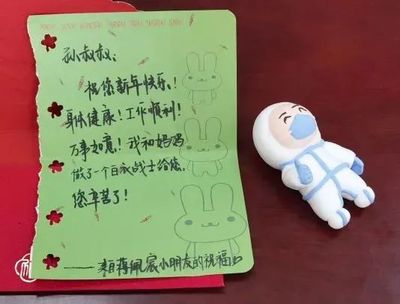 孙叔叔：
祝您新年快乐！
身体健康！工作顺利！
万事如意！我和妈妈
做了一个白衣战士给您，
您辛苦了！
——来自蒋佩宸小朋友的祝福